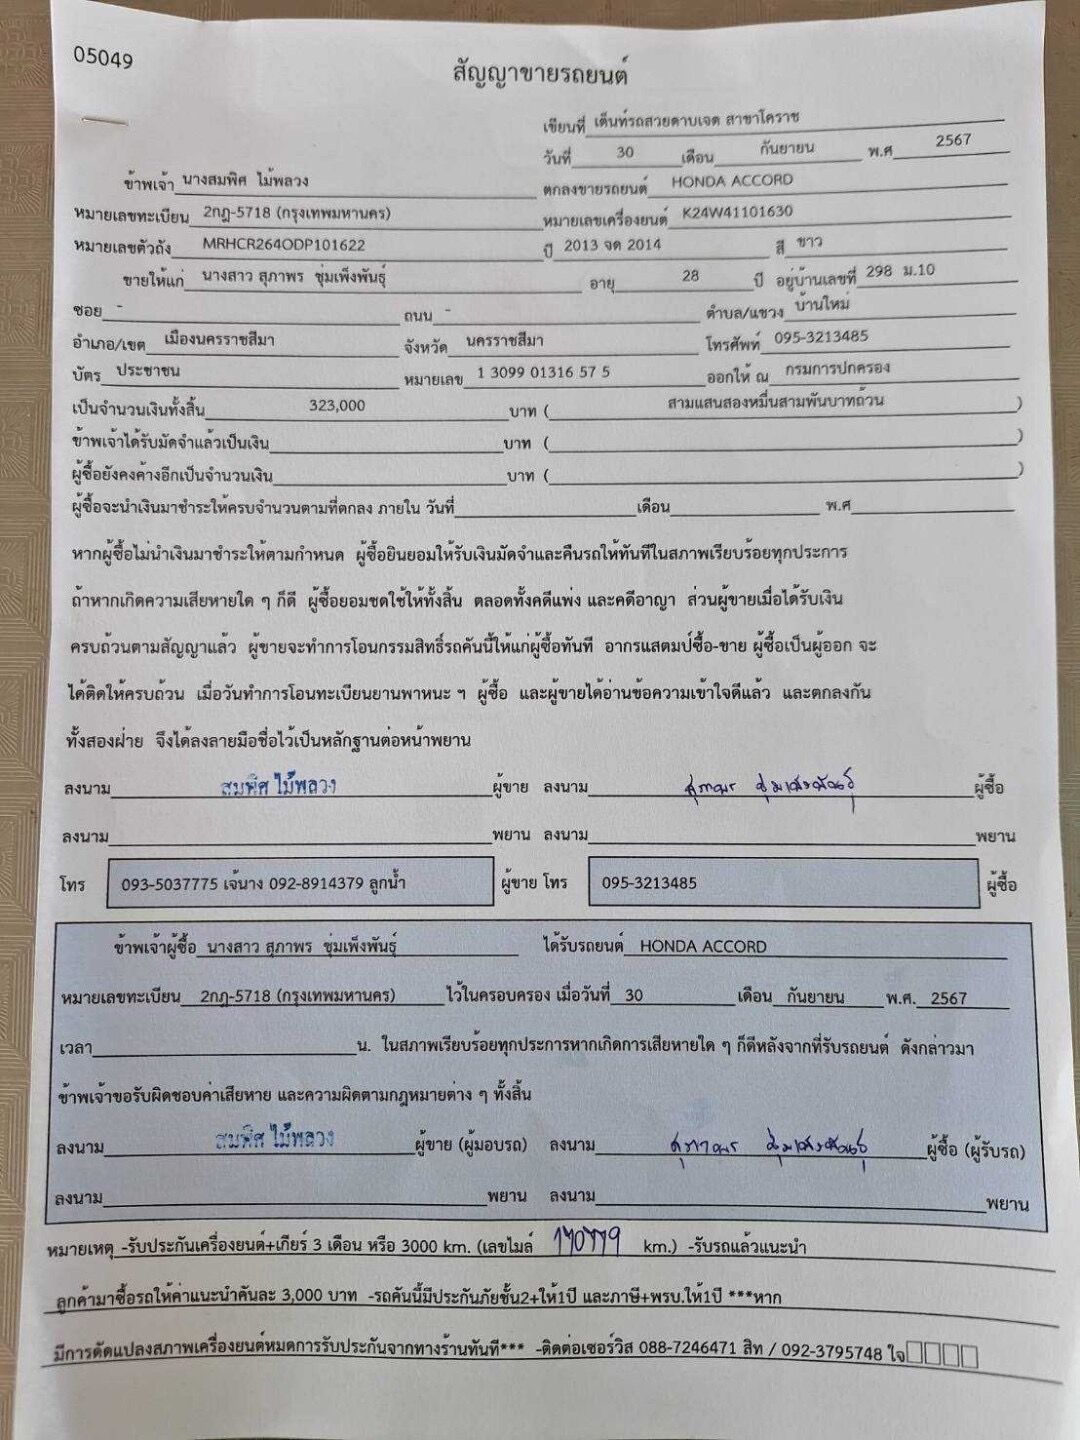 05049
สัญญาขายรถยนต์
เขียนที่ เต็นท์รถสวยดาบเจต สาขาโคราช
วันที่ 30 เดือน กันยายน พ.ศ 2567
ข้าพเจ้า นางสมพิศ ไม้พลวง ตกลงขายรถยนต์ HONDA ACCORD
หมายเลขทะเบียน 2กฎ-5718 (กรุงเทพมหานคร) หมายเลขเครื่องยนต์ K24W41101630
หมายเลขตัวถัง MRHCR264ODP101622 ปี 2013 จด 2014 สี ขาว
ขายให้แก่ นางสาว สุภาพร ชุ่มเพ็งพันธุ์ อายุ 28 ปี อยู่บ้านเลขที่ 298 ม.10
ซอย - ถนน - ตำบล/แขวง บ้านใหม่
อำเภอ/เขต เมืองนครราชสีมา จังหวัด นครราชสีมา โทรศัพท์ 095-3213485
บัตร ประชาชน หมายเลข 1 3099 01316 57 5 ออกให้ ณ กรมการปกครอง
เป็นจำนวนเงินทั้งสิ้น 323,000 บาท ( สามแสนสองหมื่นสามพันบาทถ้วน )
ข้าพเจ้าได้รับมัดจำแล้วเป็นเงิน บาท ( )
ผู้ซื้อยังคงค้างอีกเป็นจำนวนเงิน บาท ( )
ผู้ซื้อจะนำเงินมาชำระให้ครบจำนวนตามที่ตกลง ภายใน วันที่ เดือน พ.ศ
หากผู้ซื้อไม่นำเงินมาชำระให้ตามกำหนด ผู้ซื้อยินยอมให้รับเงินมัดจำและคืนรถให้ทันทีในสภาพเรียบร้อยทุกประการ
ถ้าหากเกิดความเสียหายใด ๆ ก็ดี ผู้ซื้อยอมชดใช้ให้ทั้งสิ้น ตลอดทั้งคดีแพ่ง และคดีอาญา ส่วนผู้ขายเมื่อได้รับเงิน
ครบถ้วนตามสัญญาแล้ว ผู้ขายจะทำการโอนกรรมสิทธิ์รถคันนี้ให้แก่ผู้ซื้อทันที อากรแสตมป์ซื้อ-ขาย ผู้ซื้อเป็นผู้ออก จะ
ได้ติดให้ครบถ้วน เมื่อวันทำการโอนทะเบียนยานพาหนะ ฯ ผู้ซื้อ และผู้ขายได้อ่านข้อความเข้าใจดีแล้ว และตกลงกัน
ทั้งสองฝ่าย จึงได้ลงลายมือชื่อไว้เป็นหลักฐานต่อหน้าพยาน
ลงนาม สมพิศ ไม้พลวง ผู้ขาย ลงนาม สุภาพร ชุ่มเพ็งพันธุ์ ผู้ซื้อ
ลงนาม พยาน ลงนาม พยาน
โทร 093-5037775 เจ้นาง 092-8914379 ลูกน้ำ ผู้ขาย โทร 095-3213485 ผู้ซื้อ
ข้าพเจ้าผู้ซื้อ นางสาว สุภาพร ชุ่มเพ็งพันธุ์ ได้รับรถยนต์ HONDA ACCORD
หมายเลขทะเบียน 2กฎ-5718 (กรุงเทพมหานคร) ไว้ในครอบครอง เมื่อวันที่ 30 เดือน กันยายน พ.ศ. 2567
เวลา น. ในสภาพเรียบร้อยทุกประการหากเกิดการเสียหายใด ๆ ก็ดีหลังจากที่รับรถยนต์ ดังกล่าวมา
ข้าพเจ้าขอรับผิดชอบค่าเสียหาย และความผิดตามกฎหมายต่าง ๆ ทั้งสิ้น
ลงนาม สมพิศ ไม้พลวง ผู้ขาย (ผู้มอบรถ) ลงนาม สุภาพร ชุ่มเพ็งพันธุ์ ผู้ซื้อ (ผู้รับรถ)
ลงนาม พยาน ลงนาม พยาน
หมายเหตุ -รับประกันเครื่องยนต์+เกียร์ 3 เดือน หรือ 3000 km. (เลขไมล์ km.) -รับรถแล้วแนะนำ
ลูกค้ามาซื้อรถให้ค่าแนะนำคันละ 3,000 บาท -รถคันนี้มีประกันภัยชั้น2+ให้1ปี และภาษี+พรบ.ให้1ปี ***หาก
มีการดัดแปลงสภาพเครื่องยนต์หมดการรับประกันจากทางร้านทันที*** -ติดต่อเซอร์วิส 088-7246471 สิท / 092-3795748 ใจ